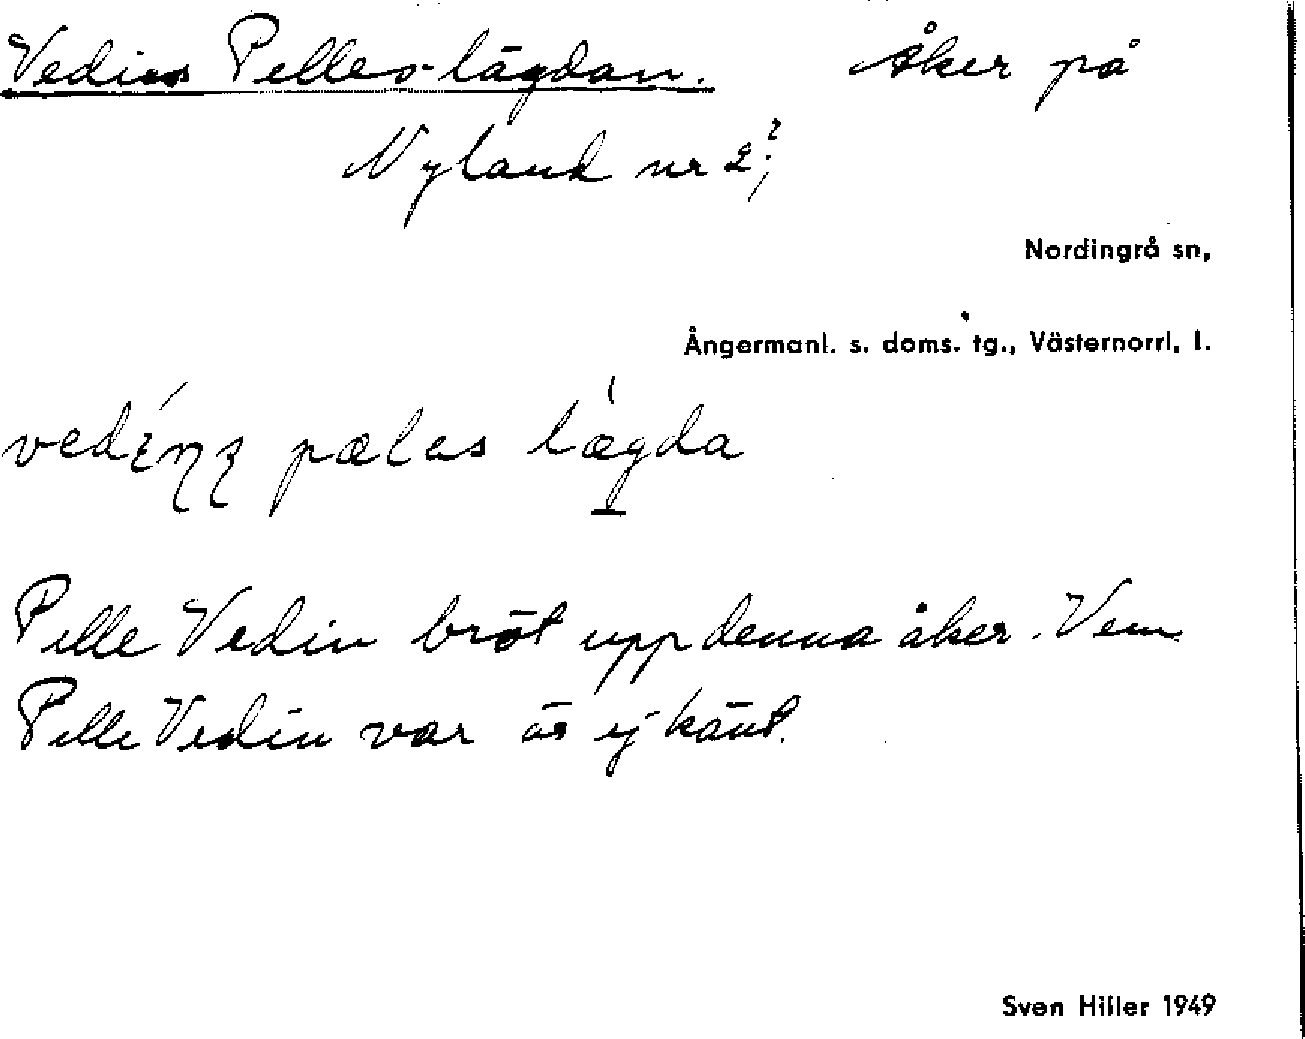 Vedins Pelles-lägdan. Åker på
Nyland nr 2;?
Nordingrå sn,
Ångermanl. s. doms. tg., Västernorrl. l.
pælas lægda
Pelle Vedin bröt upp denna åker. Vem
Pelle Vedin var är ej känt.
Sven Hiller 1949